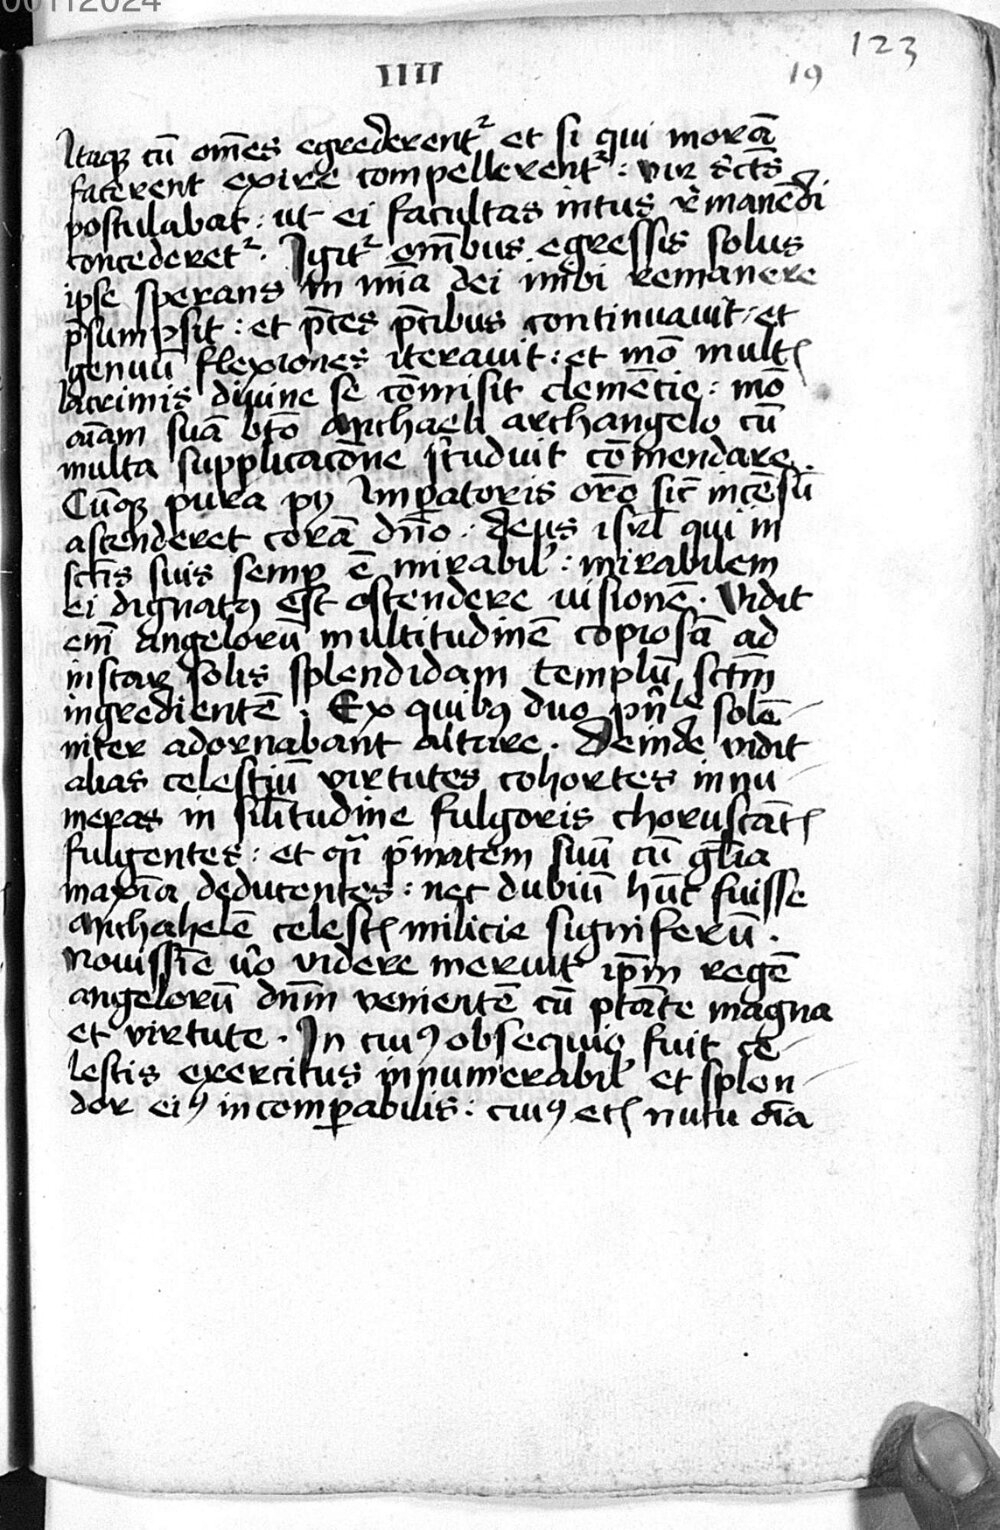 00112024
123
IIII
19
Itaqꝫ cū om̄es egrederentᷣ et si qui morā
facerent exire compellerentᷣ : vir sc̄ts
postulabat : ut ei facultas intus rͤmanēdi
concederetᷣ . Igitᷣ om̄ibus egressis solus
ipse sperans in mīa dei inibi remanere
p̄sumpsit : et p̄ces p̄cibus continuauit : et
genuū flexiones iterauit : et mō multꝭ
lacrimis diuine se cōmisit clemēcie : mō
aīam suā bt̄o michaeli archangelo cū
multa supplicacōne studuit cōmendare .
Cūqꝫ pura pij Imꝑatoris or̄o sic̄ incēsū
ascenderet corā dn̄o : deus isrl̄ qui in
sc̄tis suis semꝑ ē mirabil' : mirabilem
ei dignatꝰ est ostendere uisionē . Vidit
em̄ angelorū multitudinē copiosā ad
instar solis splendidam templū sc̄tm̄
ingredientē . Ex quibꝰ duo solē-
niter adornabant altare . Deinde vidit
alias celestiū virtutes cohortes innu-
meras in sil̄itudine fulgoris choruscāt̄ꝭ
fulgentes : et qͣi p̄matem suū cū gl̄ia
maxīa deducentes : nec dubiū hūc fuisse
michahelē celestꝭ milicie signiferū .
Nouissīe v̄o videre meruit ip̄m regē
angelorū dn̄m venientē cū ptāte magna
et virtute . In cuiꝰ obsequio fuit ce-
lestis exercitus innumerabil' et splen-
dor eiꝰ incomꝑabilis : cuiꝰ etꝭ nutu oīa